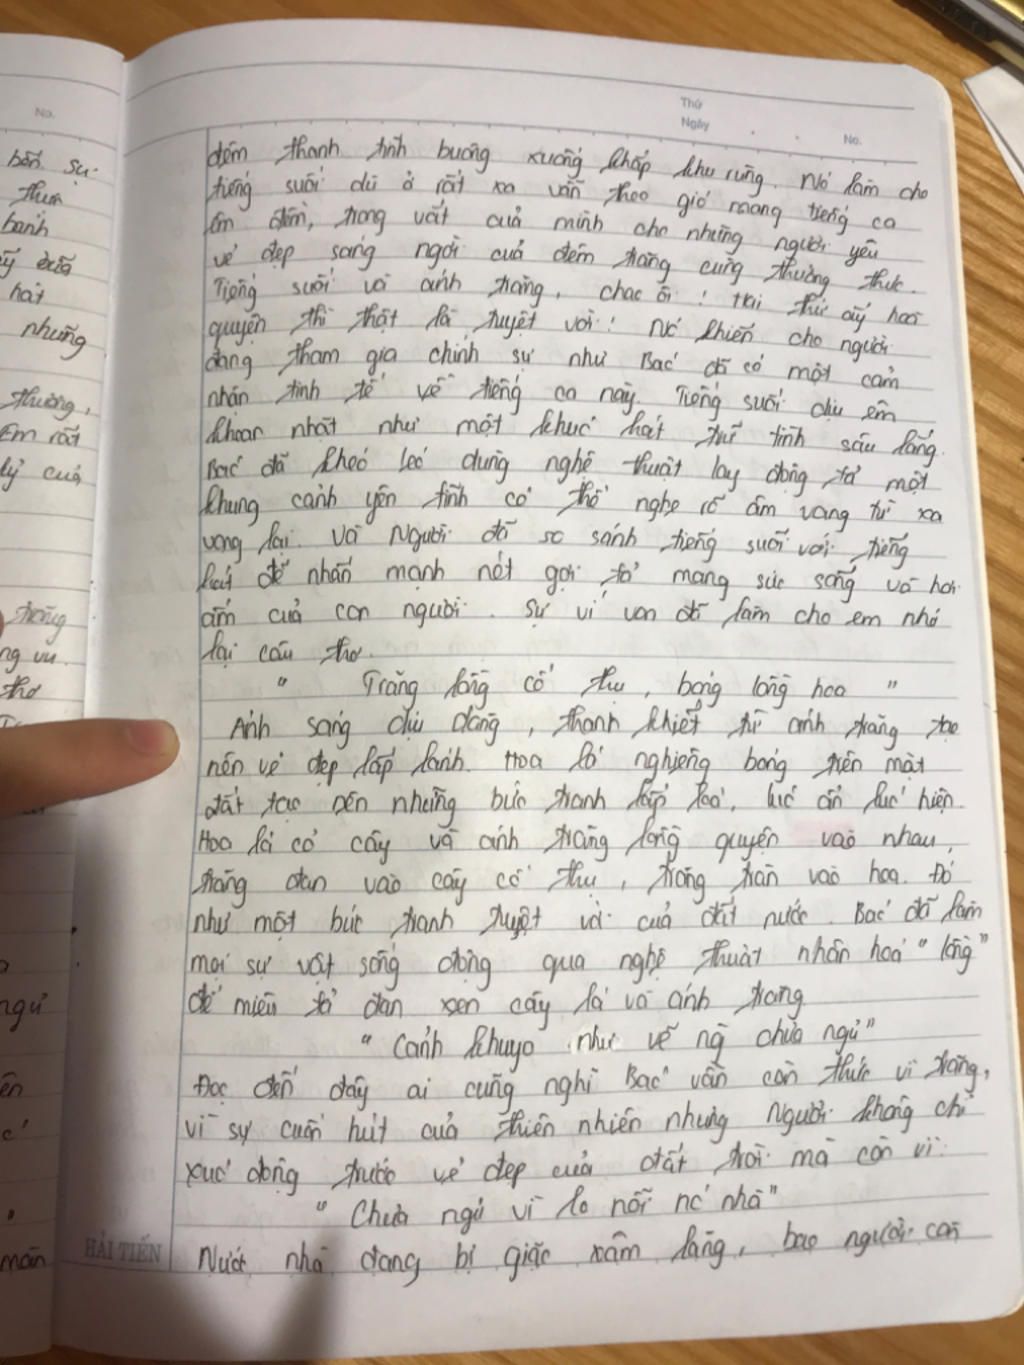 Thứ
Ngày
No.
No.
bốn sự
thêm
bánh
hát
những
thường,
Em rất
lý của
trăng
ng vu.
thơ
ngủ
đêm thanh tĩnh buông xuống khắp khu rừng. Nó làm cho
tiếng suối dù ở rất xa vẫn theo gió mang tiếng ca
êm đềm, trong vắt của mình cho những người yêu
vẻ đẹp sáng ngời của đêm trăng cùng thưởng thức.
Tiếng suối và ánh trăng, chao ôi! Hai thứ ấy hoà
quyện thì thật là tuyệt vời! Nó khiến cho người
đang tham gia chính sự như Bác đã có một cảm
nhận tinh tế về tiếng ca này. Tiếng suối dịu êm
khoan nhặt như một khúc hát trữ tình sâu lắng.
Bác đã khéo léo dùng nghệ thuật lay động tả một
khung cảnh yên tĩnh có thể nghe rõ âm vang từ xa
vọng lại. Và Người đã so sánh tiếng suối với tiếng
hát để nhấn mạnh nét gợi tả mang sức sống và hơi
ấm của con người. Sự ví von đã làm cho em nhớ
lại câu thơ.
" Trăng lồng cổ thụ, bóng lồng hoa "
Ánh sáng dịu dàng, thanh khiết từ ánh trăng tạo
nên vẻ đẹp lấp lánh. Hoa lá nghiêng bóng trên mặt
đất tạo nên những bức tranh lấp loá, lúc ẩn lúc hiện.
Hoa lá cỏ cây và ánh trăng lồng quyện vào nhau,
trăng đan vào cây cổ thụ, trăng tràn vào hoa. Đó
như một bức tranh tuyệt vời của đất nước. Bác đã làm
mọi sự vật sống động qua nghệ thuật nhân hoá "lồng"
để miêu tả đan xen cây lá và ánh trăng
"Cảnh khuya như vẽ ng chưa ngủ"
Đọc đến đây ai cũng nghĩ Bác vẫn còn thức vì trăng,
vì sự cuốn hút của thiên nhiên nhưng Người không chỉ
xúc động trước vẻ đẹp của đất trời mà còn vì:
"Chưa ngủ vì lo nỗi nc nhà"
Nước nhà đang bị giặc xâm lăng, bao người con
HẢI TIẾN